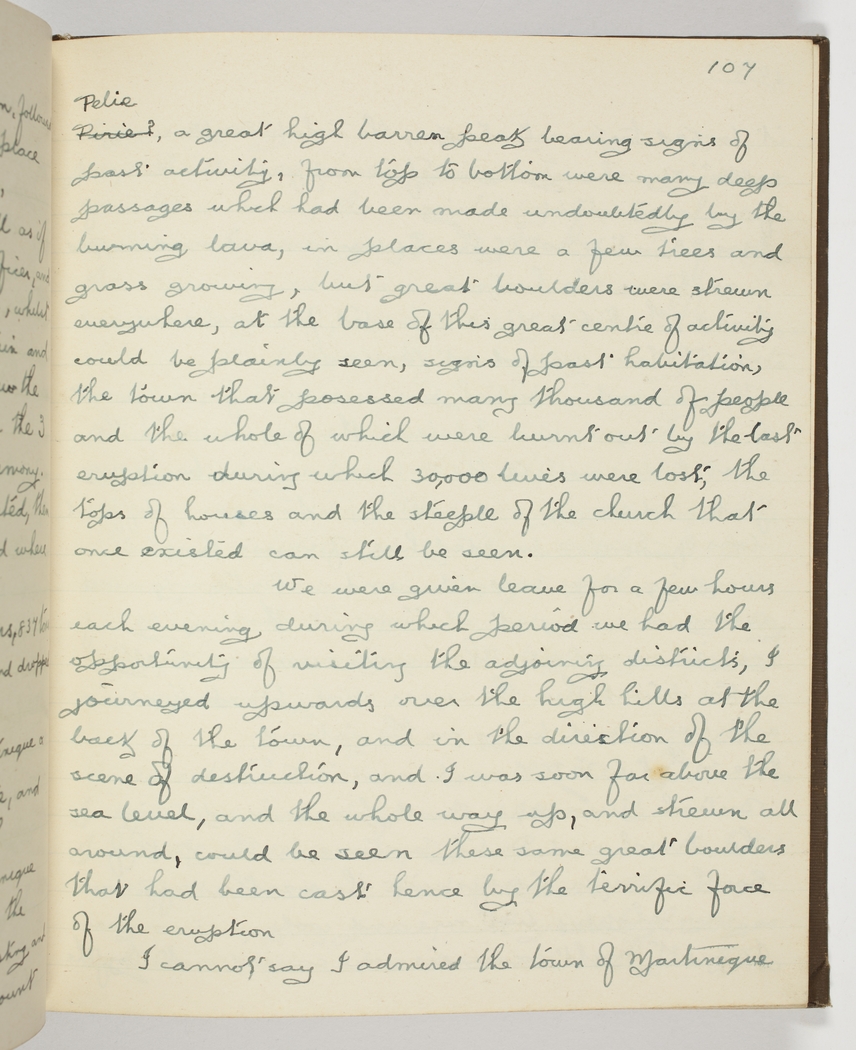 107
Pelie
Pirie?, a great high barren peak bearing signs of
past activity, from top to bottom were many deep
passages which had been made undoubtedly by the
burning lava, in places were a few trees and
grass growing, but great boulders were strewn
everywhere, at the base of this great centre of activity
could be plainly seen, signs of past habitation,
the town that posessed many thousand of people
and the whole of which were burnt out by the last
eruption during which 30,000 lives were lost, the
tops of houses and the steeple of the church that
once existed can still be seen.
We were given leave for a few hours
each evening, during which period we had the
opportunity of visiting the adjoining districts, I
journeyed upwards over the high hills at the
back of the town, and in the direction of the
scene of destruction, and I was soon far above the
sea level, and the whole way up, and strewn all
around, could be seen these same great boulders
that had been cast hence by the terrific force
of the eruption
I cannot say I admired the town of Martinique
n, follows
place
l as if
fices, and
, whilst
and
the
the 3
mony.
the
d where
rs, 837
nd dropped
nique a
e, and
nique
the
and
ount